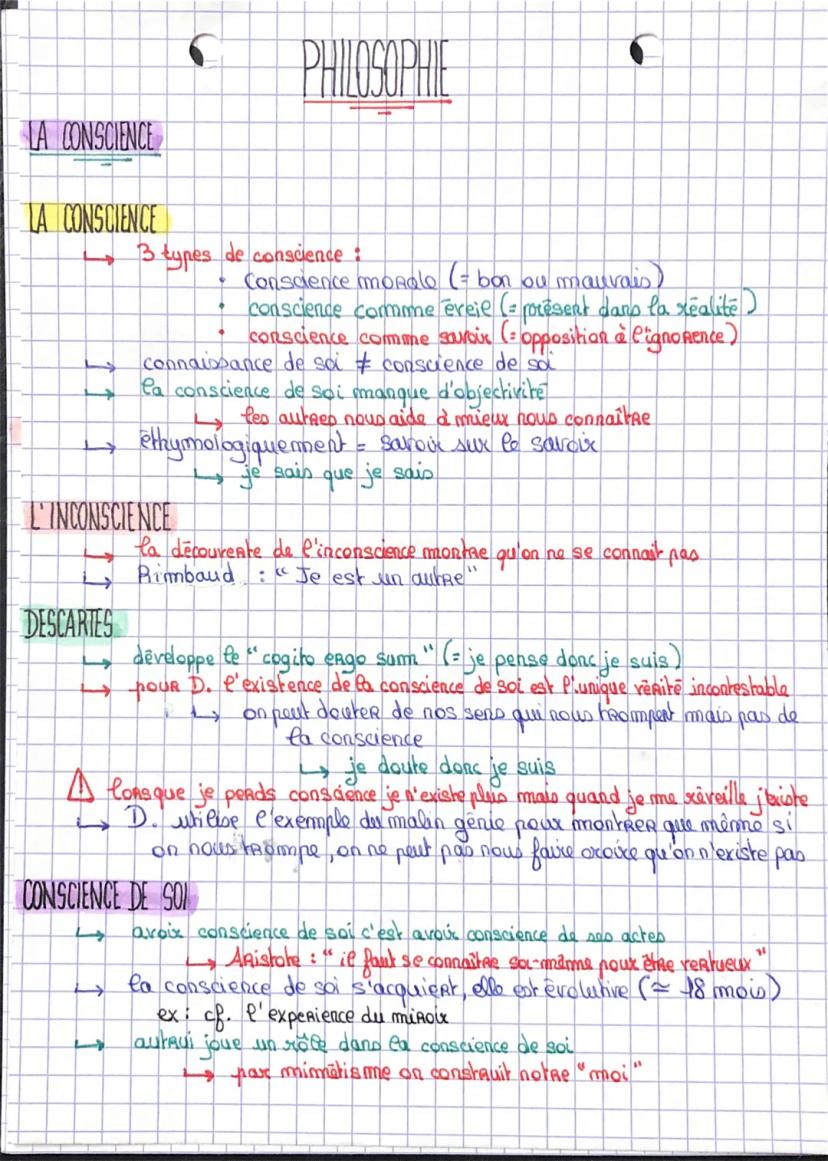 PHILOSOPHIE
LA CONSCIENCE
LA CONSCIENCE
↳ 3 types de conscience :
• conscience morale (= bon ou mauvais)
• conscience comme éveil (= présent dans la réalité)
• conscience comme savoir (= opposition à l'ignorence)
↳ connaissance de soi ≠ conscience de soi
↳ la conscience de soi manque d'objectivité
↳ les autres nous aide à mieux nous connaître
↳ éthymologiquement = savoir sur le savoir
↳ je sais que je sais
L'INCONSCIENCE
↳ la découverte de l'inconscience montre qu'on ne se connait pas
↳ Rimbaud : "Je est un autre"
DESCARTES
↳ développe le "cogito ergo sum" (= je pense donc je suis)
↳ pour D. l'existence de la conscience de soi est l'unique vérité incontestable
↳ on peut douter de nos sens qui nous trompent mais pas de
la conscience
↳ je doute donc je suis
⚠ lorsque je perds conscience je n'existe plus mais quand je me réveille j'existe
↳ D. utilise l'exemple du malin génie pour montrer que même si
on nous trompe, on ne peut pas nous faire croire qu'on n'existe pas
CONSCIENCE DE SOI
↳ avoir conscience de soi c'est avoir conscience de ses actes
↳ Aristote : "il faut se connaître soi-même pour être vertueux"
↳ la conscience de soi s'acquiert, elle est évolutive (≃ 18 mois)
ex : cf. l'experience du miroir
↳ autrui joue un rôle dans la conscience de soi
↳ par mimétisme on construit notre "moi"